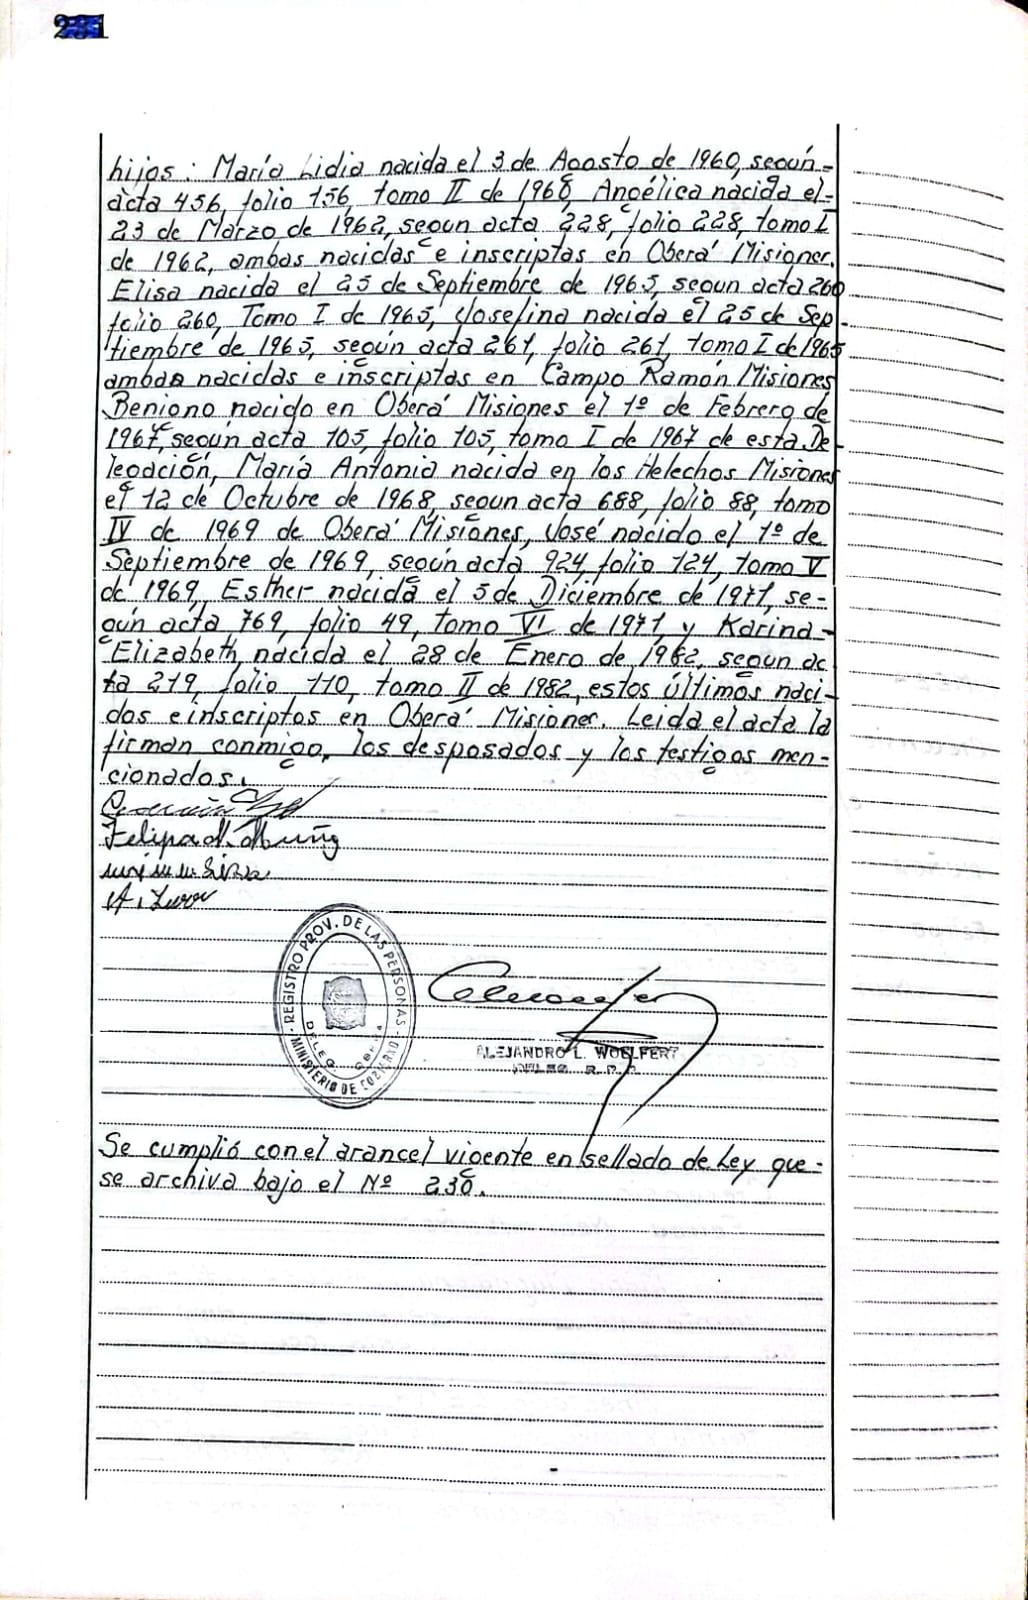 hijos: María Lidia nacida el 3 de Agosto de 1960, según-
acta 456, folio 156, tomo II de 1960, Angélica nacida el-
23 de Marzo de 1962, según acta 228, folio 228, tomo I
de 1962, ambas nacidas e inscriptas en Oberá Misiones.
Elisa nacida el 25 de Septiembre de 1965, según acta 260
folio 260, Tomo I de 1965, Josefina nacida el 25 de Sep-
tiembre de 1965, según acta 261, folio 261, tomo I de 1965
ambas nacidas e inscriptas en Campo Ramón Misiones
Benigno nacido en Oberá Misiones el 1º de Febrero de
1967, según acta 105, folio 105, tomo I de 1967 de esta De-
legación, María Antonia nacida en los Helechos Misiones
el 12 de Octubre de 1968, según acta 688, folio 88, tomo
IV de 1969 de Oberá Misiones, José nacido el 1º de
Septiembre de 1969, según acta 924 folio 124, tomo V
de 1969, Esther nacida el 5 de Diciembre de 1971, se-
gún acta 769, folio 49, tomo VI de 1971 y Karina-
Elizabeth nacida el 28 de Enero de 1982, según ac
ta 219, folio 110, tomo II de 1982, estos últimos naci-
dos e inscriptos en Oberá Misiones. Leida el acta la
firman conmigo, los desposados y los testigos men-
cionados.
Felipa
REGISTRO PROV. DE LAS PERSONAS
MINISTERIO DE GOBIERNO
DELEG. OBERA
ALEJANDRO L. WOELFERT
DELEG. R. P. P.
Se cumplió con el arancel vigente en sellado de Ley que-
se archiva bajo el Nº 230.